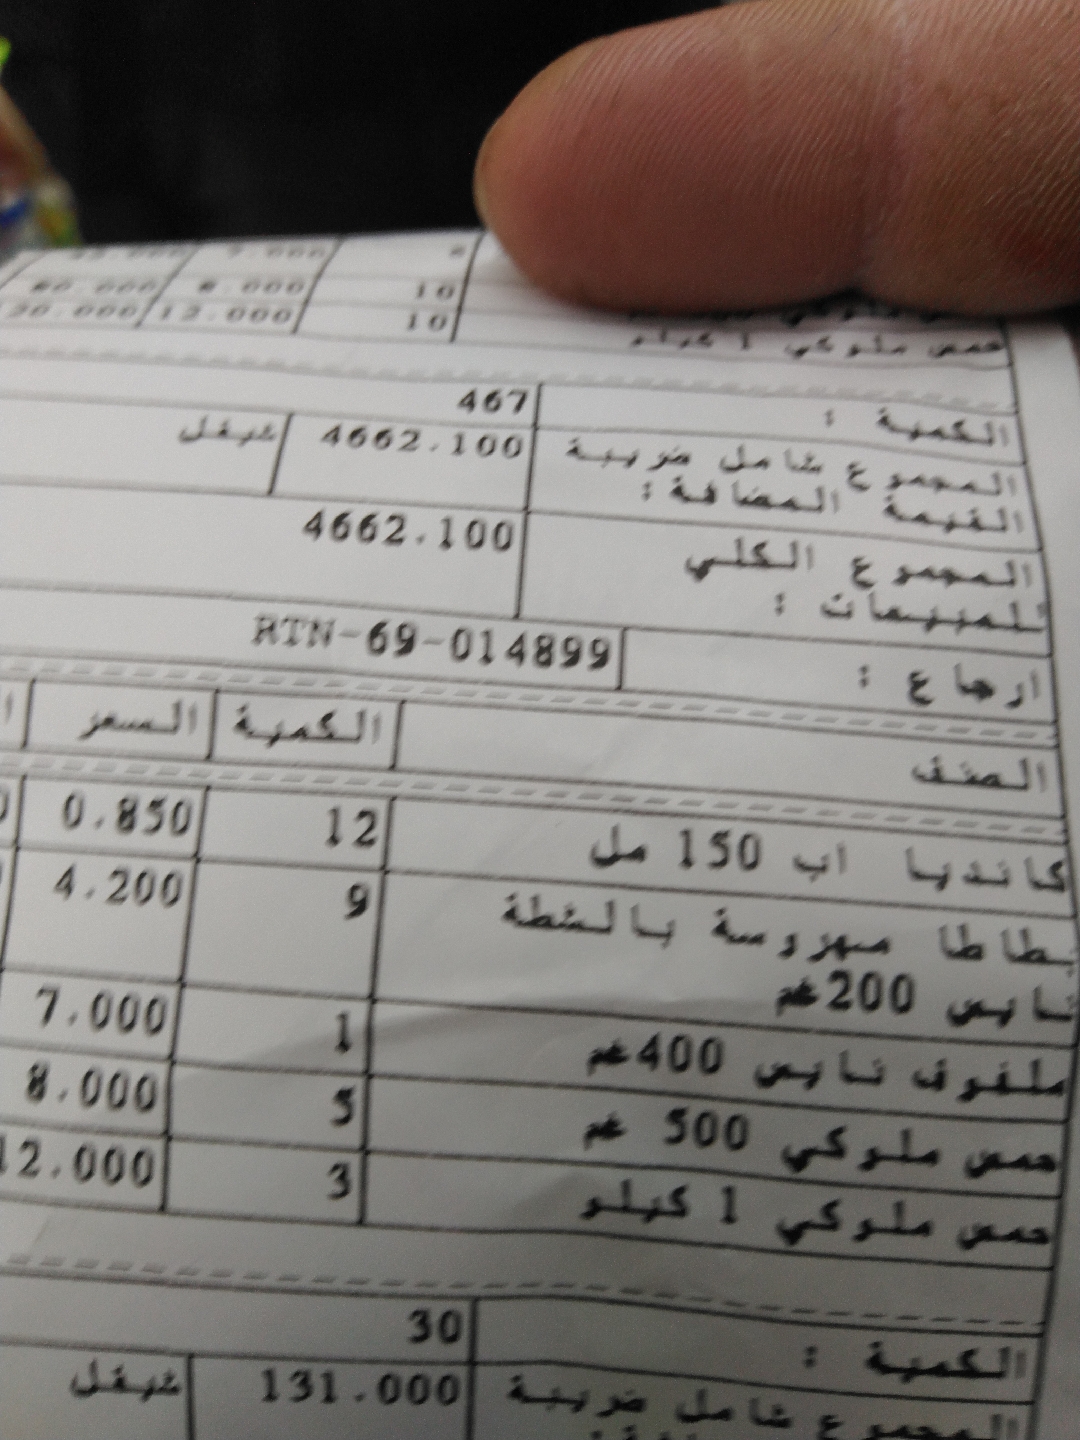 10 8.000
حمص ملوكي 1 كيلو 10 12.000
الكمية : 467
المجموع شامل ضريبة 4662.100 شيقل
القيمة المضافة :
المجموع الكلي 4662.100
للمبيعات :
ارجاع : RTN-69-014899
الصنف الكمية السعر
كانديا اب 150 مل 12 0.850
بطاطا مهروسة بالشطة 9 4.200
تايس 200غم
ملفوف تايس 400غم 1 7.000
حمص ملوكي 500 غم 5 8.000
حمص ملوكي 1 كيلو 3 12.000
الكمية : 30
المجموع شامل ضريبة 131.000 شيقل